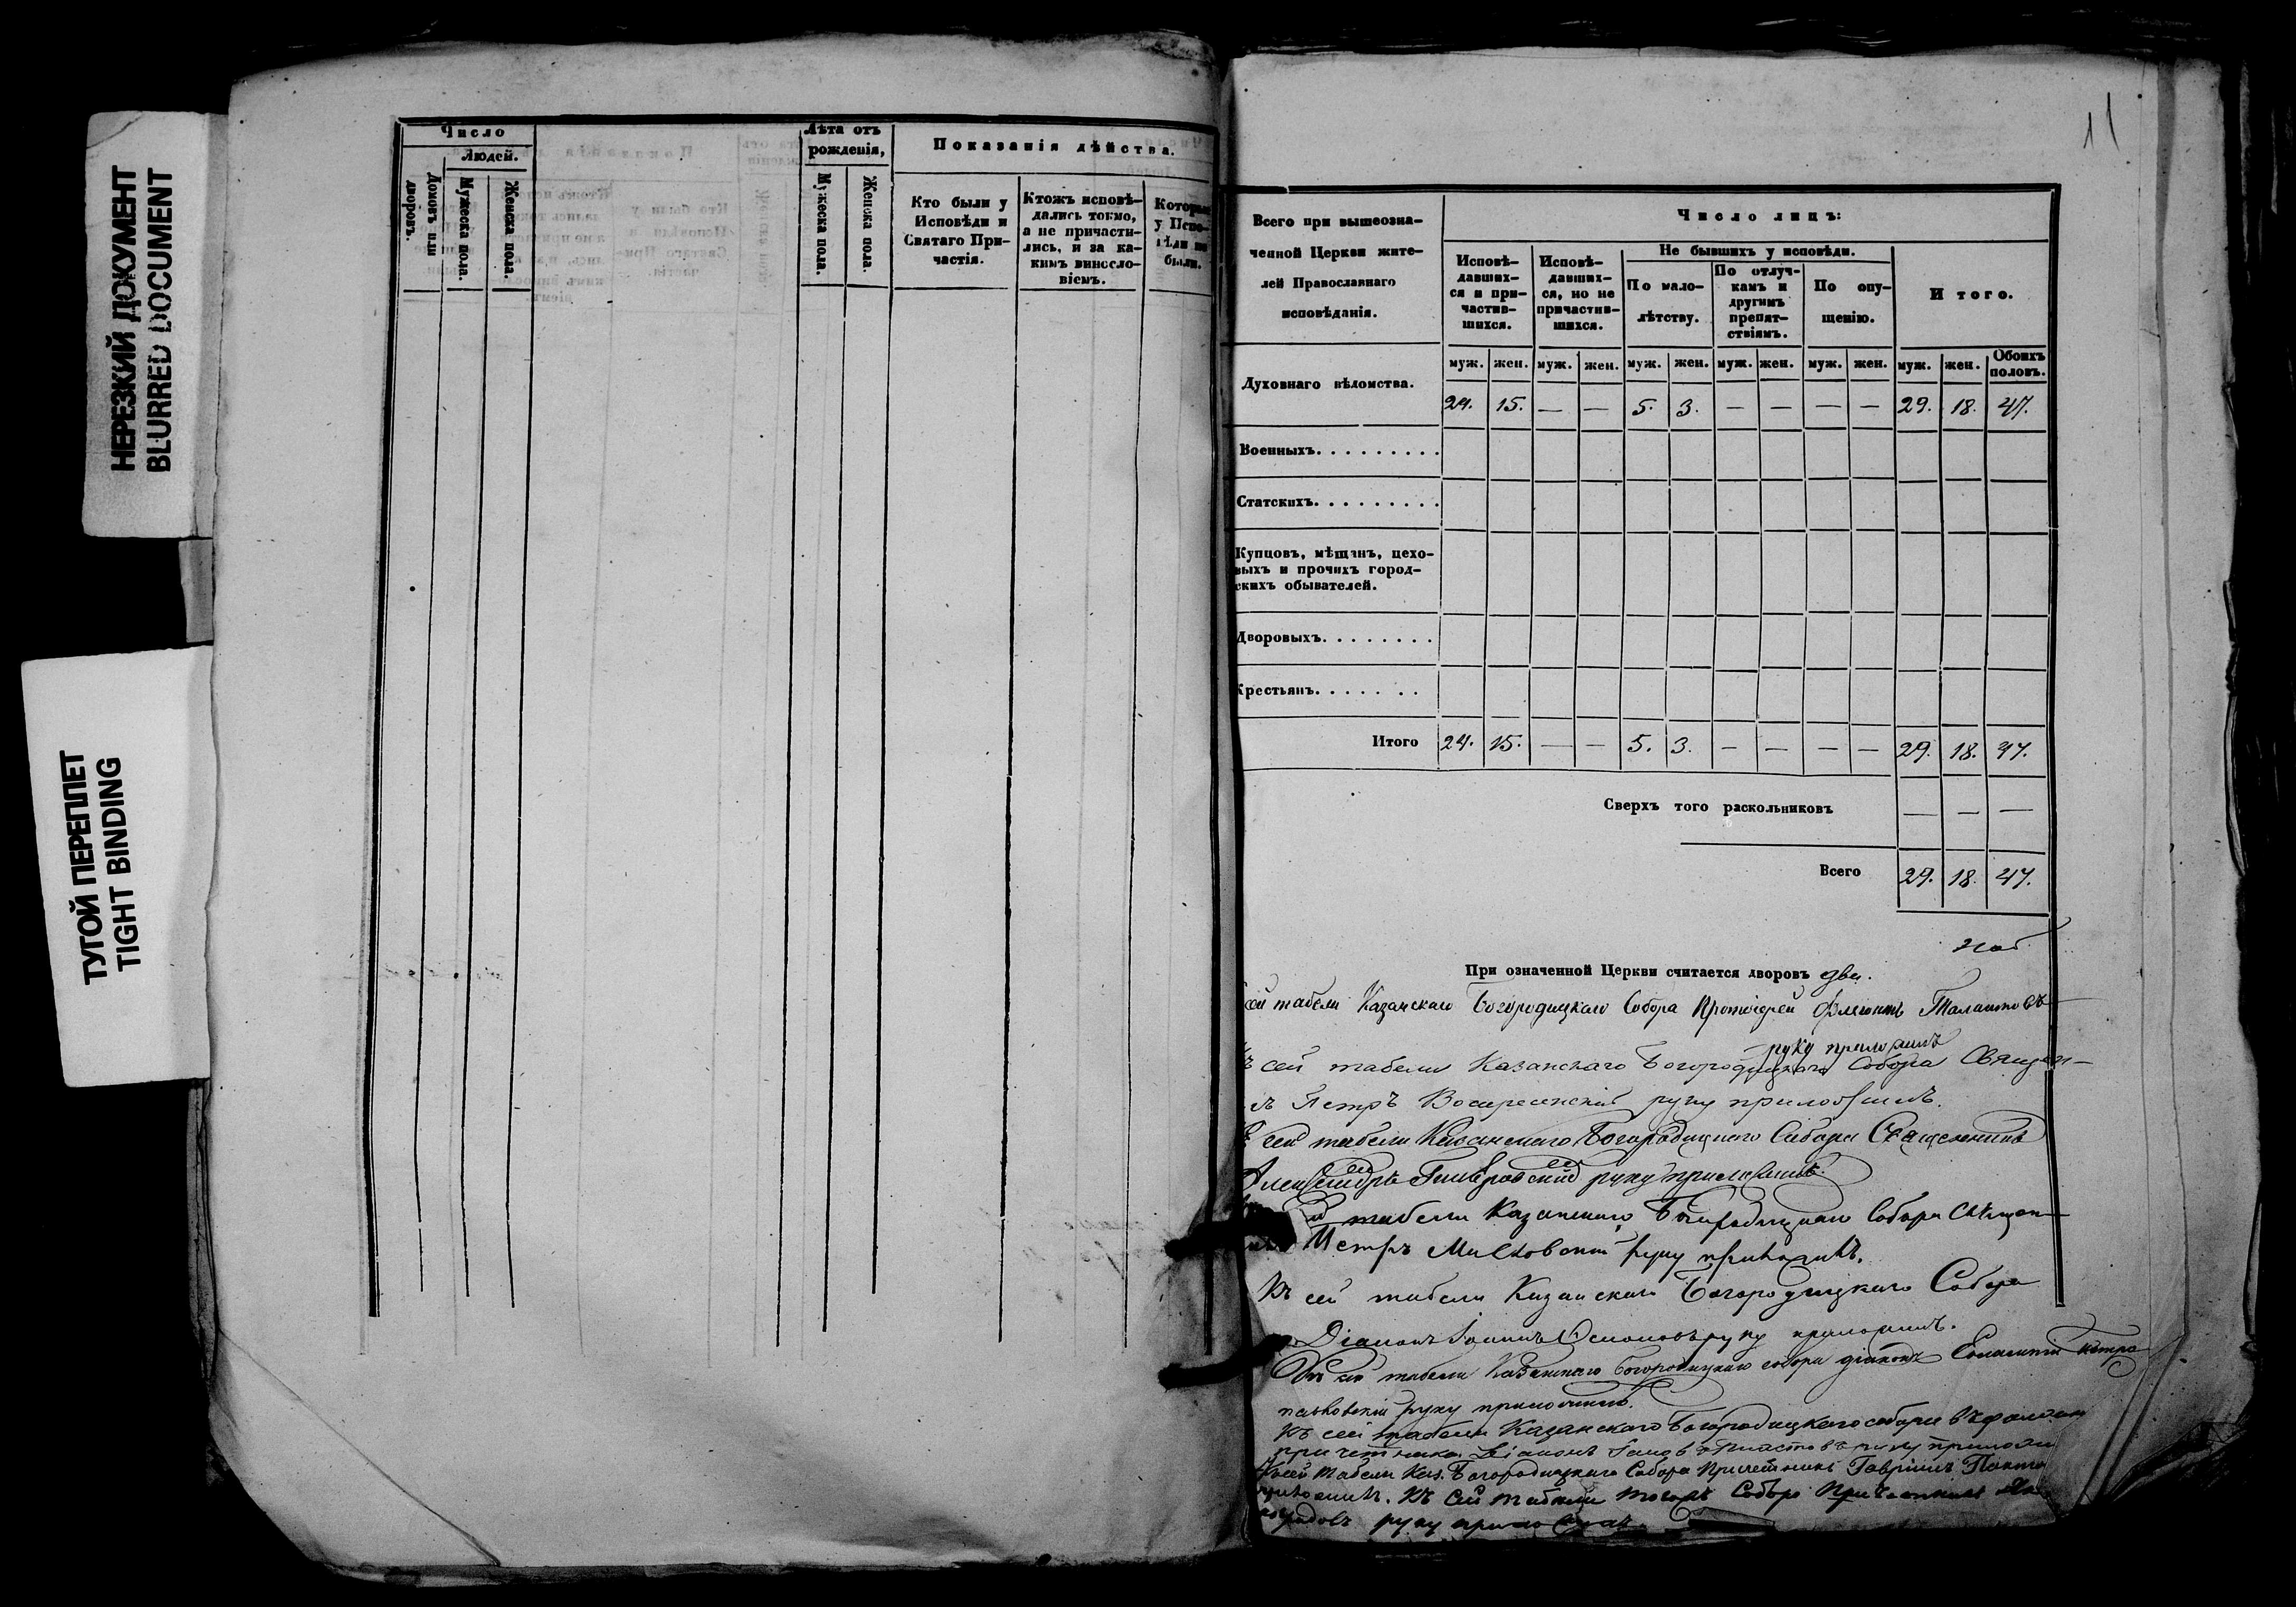 НЕРЕЗКИЙ ДОКУМЕНТ
BLURRED DOCUMENT
ТУГОЙ ПЕРЕПЛЕТ
TIGHT BINDING
Число
Людей.
Домовъ или дворовъ.
Мужеска пола.
Женска пола.
Лѣта отъ рожденія,
Мужеска пола.
Женска пола.
Показанія дѣйства.
Кто были у
Исповѣди и
Святаго При-
частія.
Ктожъ исповѣ-
дались токмо,
а не причасти-
лись, и за ка-
кимъ виносло-
віемъ.
Которые
у Испо-
вѣди не
были.
11
Всего при вышеозна-
ченной Церкви жите-
лей Православнаго
исповѣданія.
Число лицъ:
Исповѣ-
давших-
ся и при-
частив-
шихся.
Исповѣ-
давших-
ся, но не
причастив-
шихся.
Не бывшихъ у исповѣди.
По мало-
лѣтству.
По отлуч-
камъ и
другимъ
препят-
ствіямъ.
По опу-
щенію.
Итого.
муж. жен. муж. жен. муж. жен. муж. жен. муж. жен. муж. жен. Обоихъ половъ.
Духовнаго вѣдомства. 24. 15. — — 5. 3. — — — — 29. 18. 47.
Военныхъ.........
Статскихъ.........
Купцовъ, мѣщанъ, цехо-
выхъ и прочихъ город-
скихъ обывателей.
Дворовыхъ........
Крестьянъ.......
Итого 24. 15. — — 5. 3. — — — — 29. 18. 47.
Сверхъ того раскольниковъ — — —
Всего 29. 18. 47.
При означенной Церкви считается дворовъ два.
сей табели Казанскаго Богородицкаго Собора Протоіерей
руку приложилъ
сей табели Казанскаго Богородицкаго Собора Священ-
Петръ Воскресенскій руку приложилъ.
сей табели Казанскаго Богородицкаго Собора Священникъ
Александръ руку приложилъ.
табели Казанскаго Богородицкаго Собора Священ-
Петръ руку приложилъ.
Къ сей табели Казанскаго Богородицкаго Собора
Діаконъ Іоаннъ руку приложилъ.
табели Казанскаго Богородицкаго собора діаконъ Петро
павловскій руку приложилъ.
Къ сей табели Казанскаго Богородицкаго собора
причетника Діаконъ руку приложи
сей табели Каз. Богородицкаго Собора Причетникъ Гавріилъ
Къ сей табели тогожъ Собора Причетникъ
руку приложилъ.